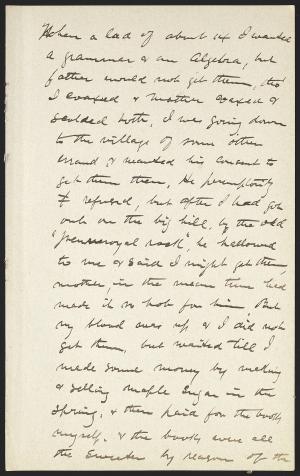 When a lad of about six I wanted
a grammar & an Algebra, but
father would not get them, tho'
I coaxed & mother coaxed &
scolded both, I was going down
to the village of some other
errand & wanted his consent to
get them then, He peremptorily
refused, but after I had got
out on the big hill, by the old
"pennyroyal rock", he hallowed
to me & said I might get them,
mother, in the mean time had
made it so hot for him But
my blood was up & I did not
get them, but waited till I
made some money by making
& selling maple sugar in the
Spring, & then paid for the books
myself. & the books were all
the sweeter by reason of the